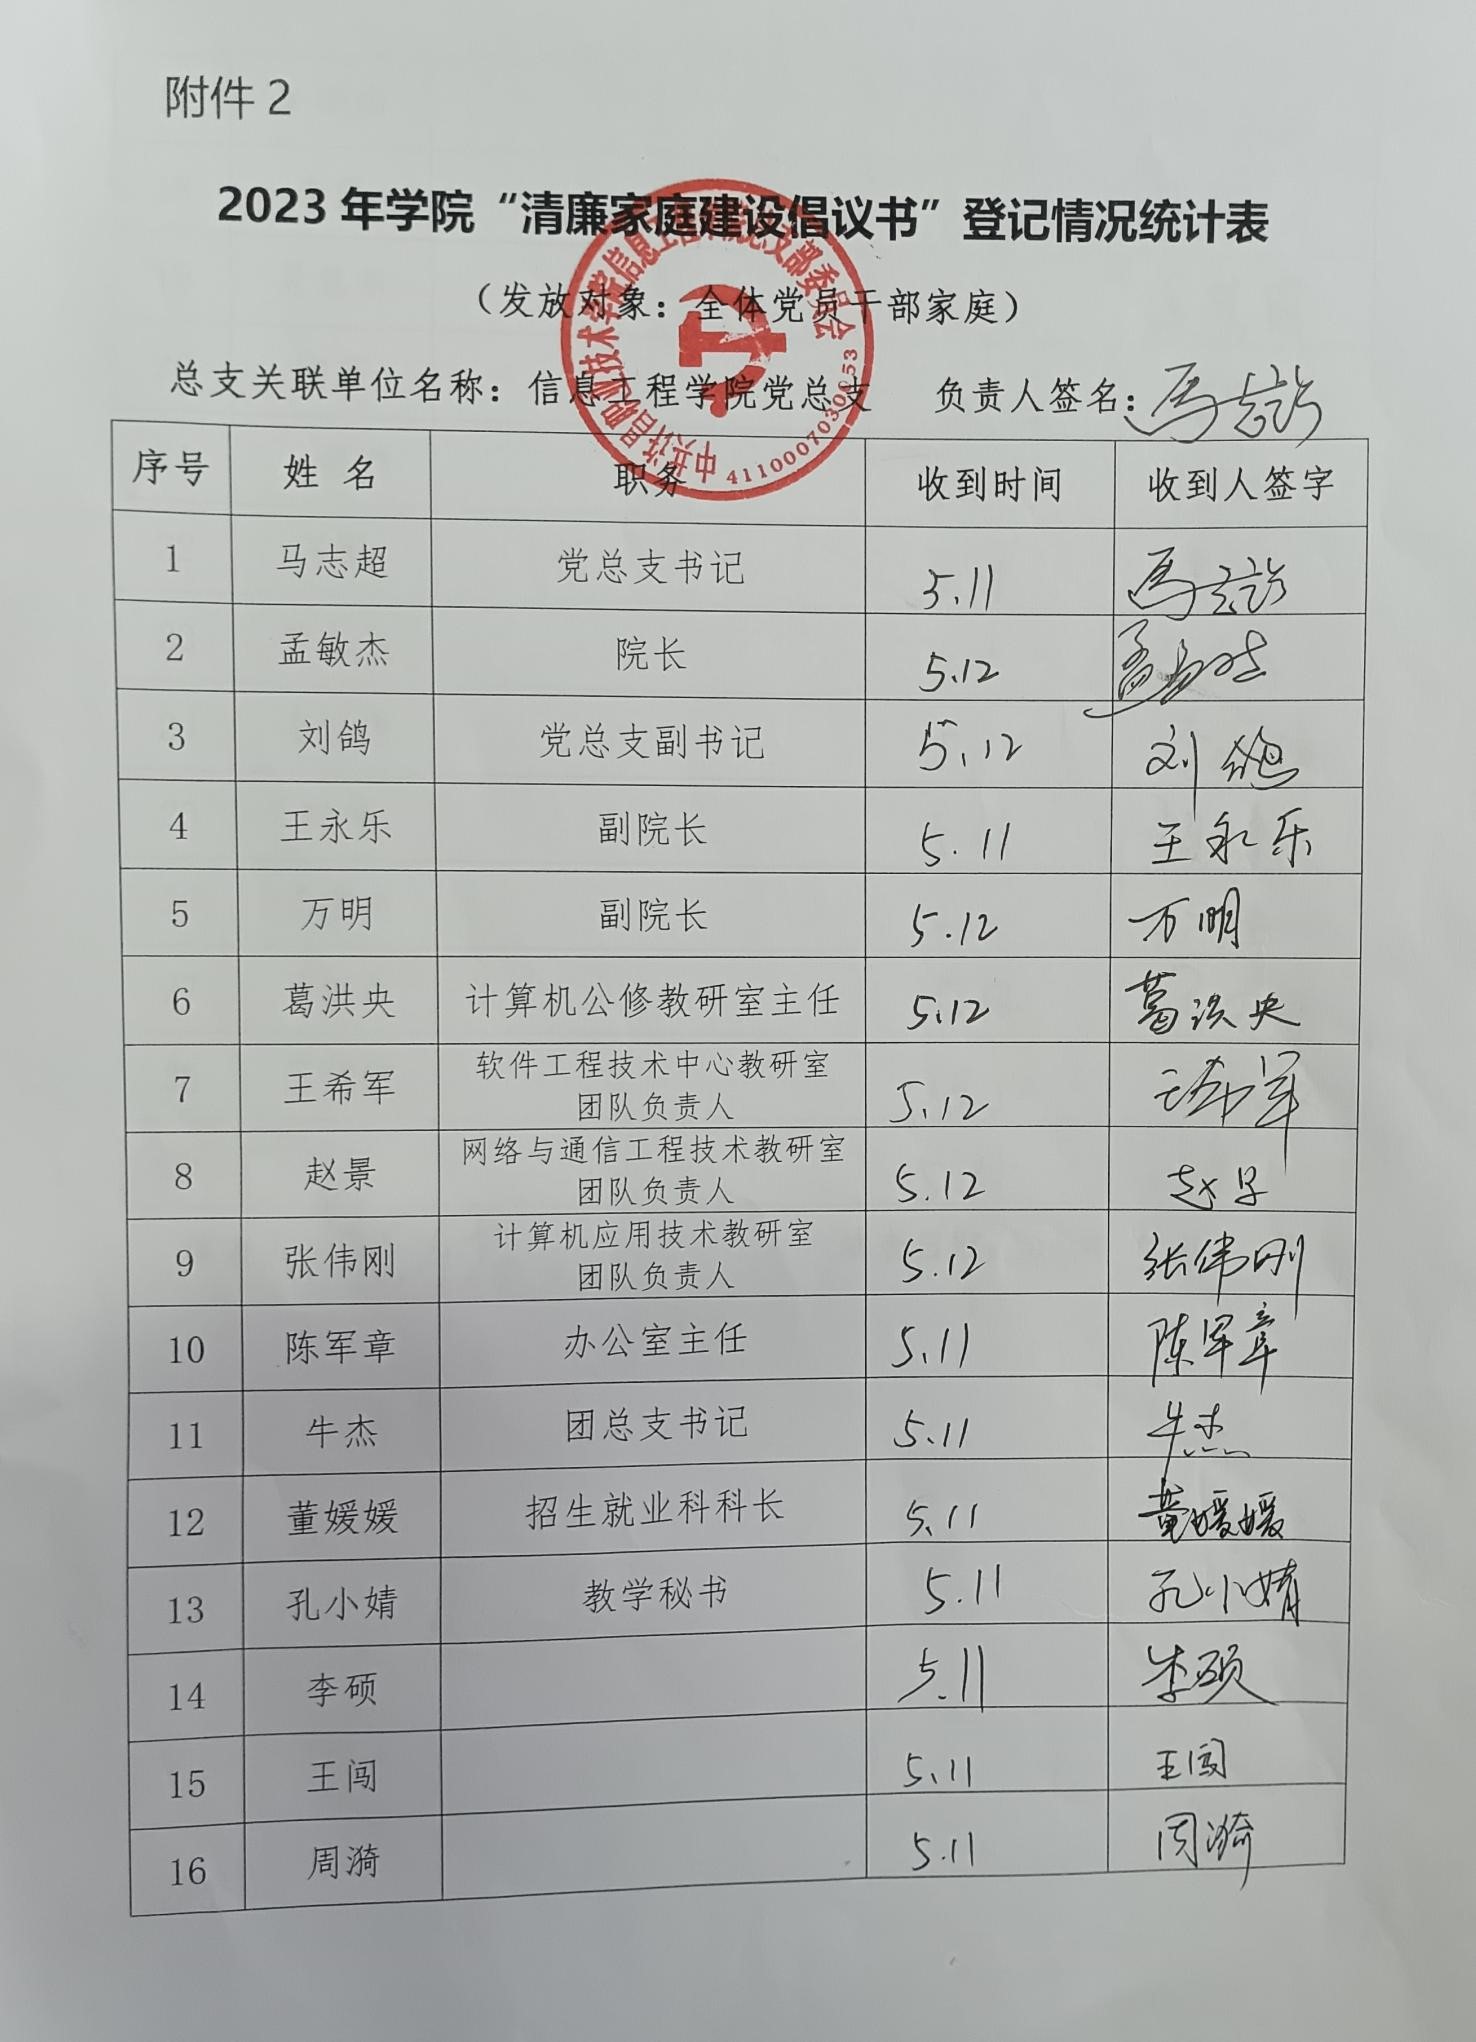 附件2
2023年学院“清廉家庭建设倡议书”登记情况统计表
（发放对象：全体党员干部家庭）
中共许昌职业技术学院信息工程学院总支部委员会
4110007030053
总支关联单位名称：信息工程学院党总支 负责人签名：马志超
序号 姓名 职务 收到时间 收到人签字
1 马志超 党总支书记 5.11 马志超
2 孟敏杰 院长 5.12 孟敏杰
3 刘鸽 党总支副书记 5.12 刘鸽
4 王永乐 副院长 5.11 王永乐
5 万明 副院长 5.12 万明
6 葛洪央 计算机公修教研室主任 5.12 葛洪央
7 王希军 软件工程技术中心教研室
团队负责人 5.12 王希军
8 赵景 网络与通信工程技术教研室
团队负责人 5.12 赵景
9 张伟刚 计算机应用技术教研室
团队负责人 5.12 张伟刚
10 陈军章 办公室主任 5.11 陈军章
11 牛杰 团总支书记 5.11 牛杰
12 董媛媛 招生就业科科长 5.11 董媛媛
13 孔小婧 教学秘书 5.11 孔小婧
14 李硕 5.11 李硕
15 王闯 5.11 王闯
16 周漪 5.11 周漪